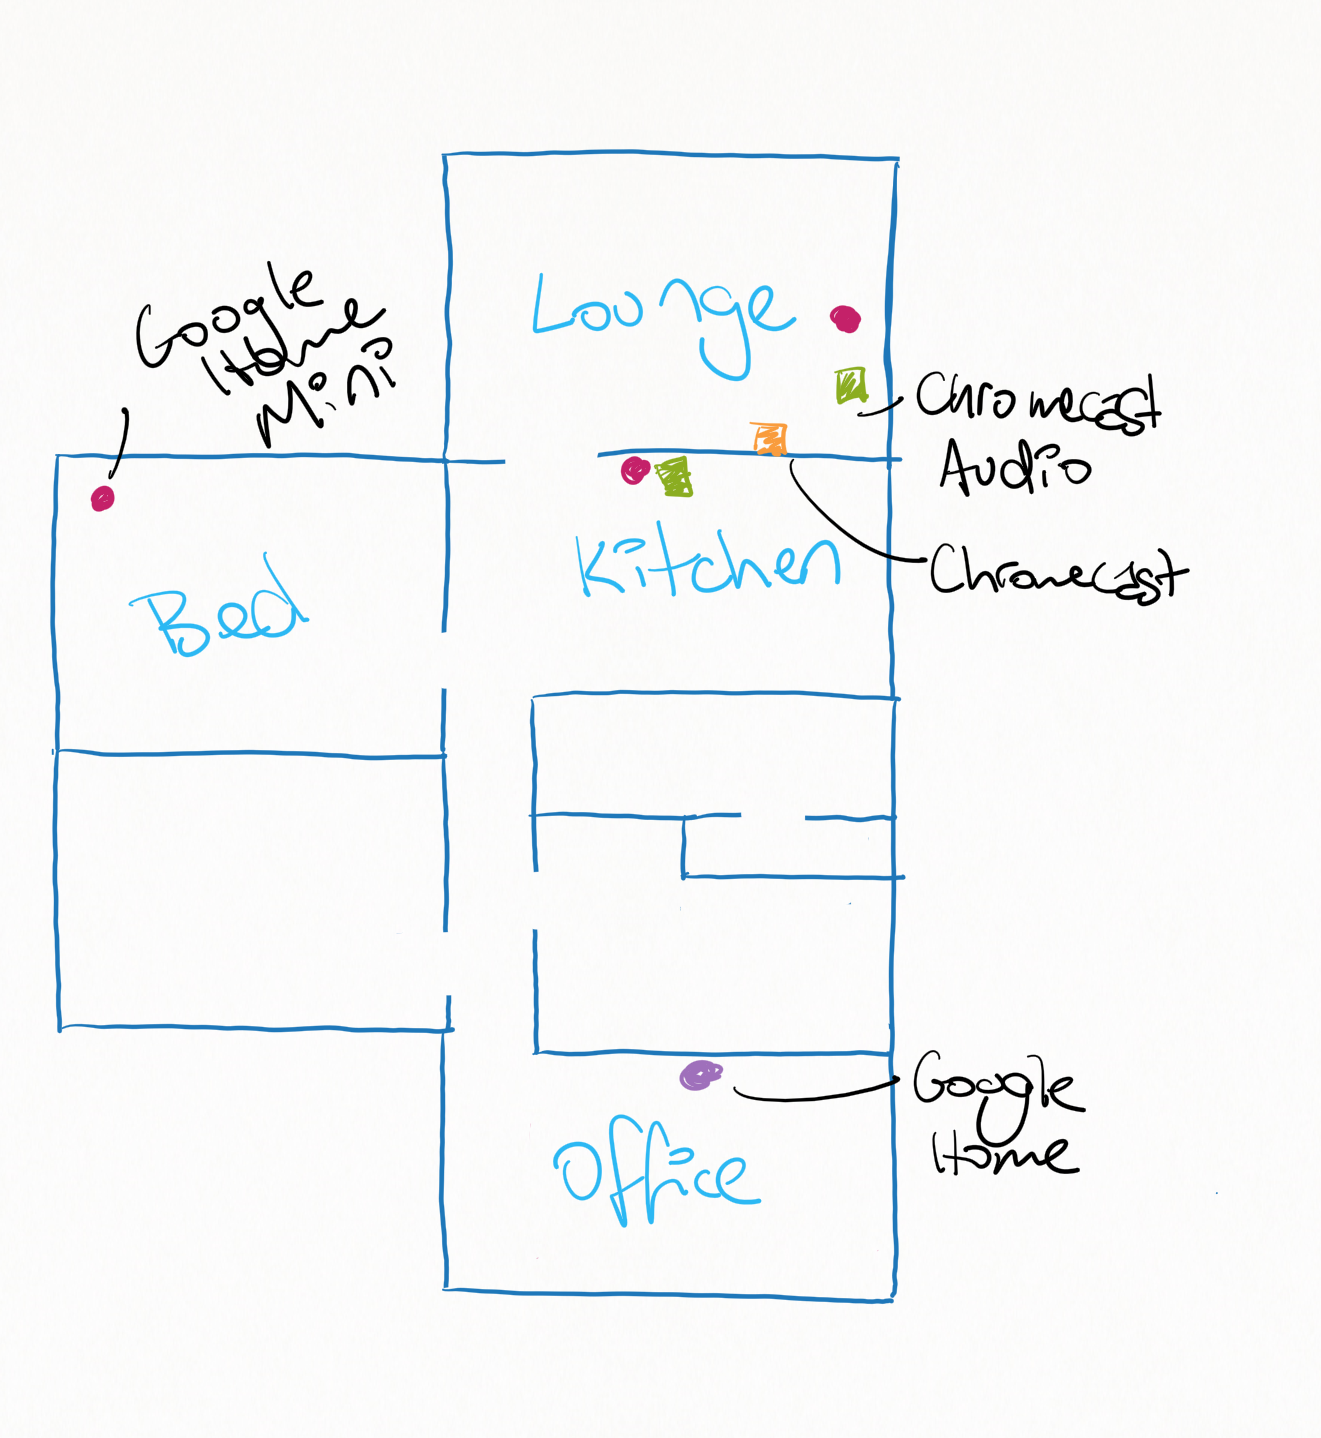 Google
Home
Mini
Lounge
Chromecast
Audio
Kitchen
Chromecast
Bed
Google
Home
Office